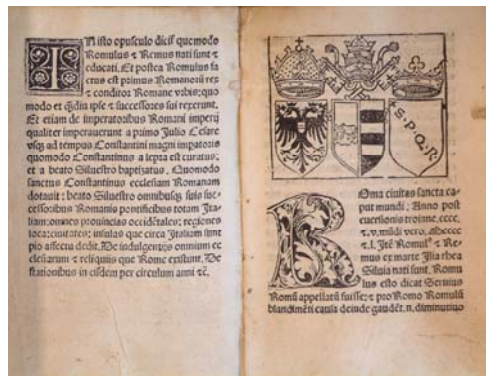 IN isto opusculo dicit quomodo
Romulus ⁊ Remus nati sunt ⁊
educati. Et postea Romulus fa
ctus est primus Romanorū rex
⁊ conditor Romane vrbis; quo
modo et ꝙdiu ipse ⁊ successores sui rexerunt.
Et etiam de imperatoribus Romani imperij
qualiter imperauerunt a primo Julio Cesare
vsqꝫ ad tempus Constantini magni impatoris
quomodo Constantinus a lepra est curatus;
et a beato Siluestro baptisatus. Quomodo
sanctus Constantinus ecclesiam Romanam
dotauit: beato Siluestro omnibusqꝫ suis suc-
cessoribus Romanis pontificibus totam Jta
liam: omnes prouincias occidētales; regiones
loca: ciuitates; insulas que circa Jtaliam sunt
pio affectu dedit. De indulgentijs omnium ec
clesiarum ⁊ reliquijs que Rome existunt. De
stationibus in eisdem per circulum anni ⁊c̄.
S·P·Q·R
ROma ciuitas sancta ca
put mundi: Anno post
euersionis troiane. cccc.
Romul⁹ ⁊ Re-
mus ex marte Jlia rhea
Siluia nati sunt. Romu
lus esto dicat Seruius
Romū appellatū fuisse; ⁊ pro Romo Romulū
blandimēti causa deinde gaudēt. n. diminutiuo